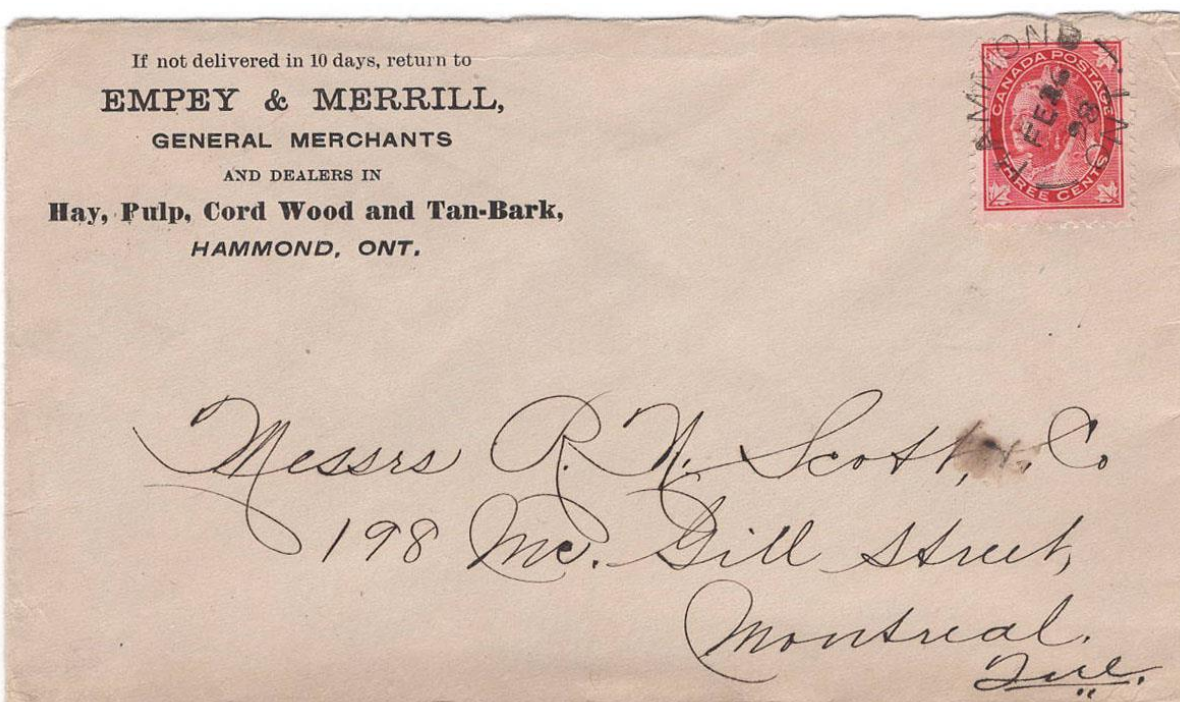 If not delivered in 10 days, return to
EMPEY & MERRILL,
GENERAL MERCHANTS
AND DEALERS IN
Hay, Pulp, Cord Wood and Tan-Bark,
HAMMOND, ONT.
HAMMOND ONT.
FE 98
CANADA POSTAGE
THREE CENTS
Messrs R. N. Scott, & Co
198 Mc. Gill Street,
Montreal.
Que.